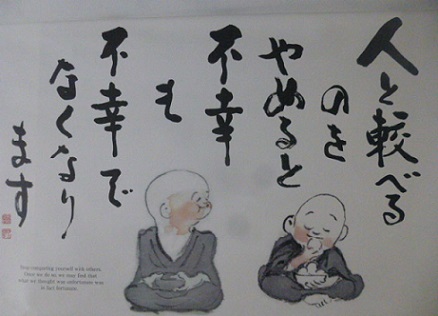 人と較べる
のを
やめると
不幸
も
不幸で
なくなり
ます
Stop comparing yourself with others.
Once we do so, we may find that
what we thought was unfortunate was
in fact fortunate.